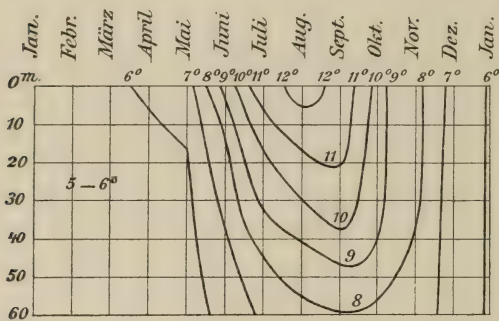 Jan. Febr. März April Mai Juni Juli Aug. Sept. Okt. Nov. Dez. Jan.
0m. 6° 7° 8° 9° 10° 11° 12° 12° 11° 10° 9° 8° 7° 6°
10
20 11
30 5–6° 10
40 9
50 8
60